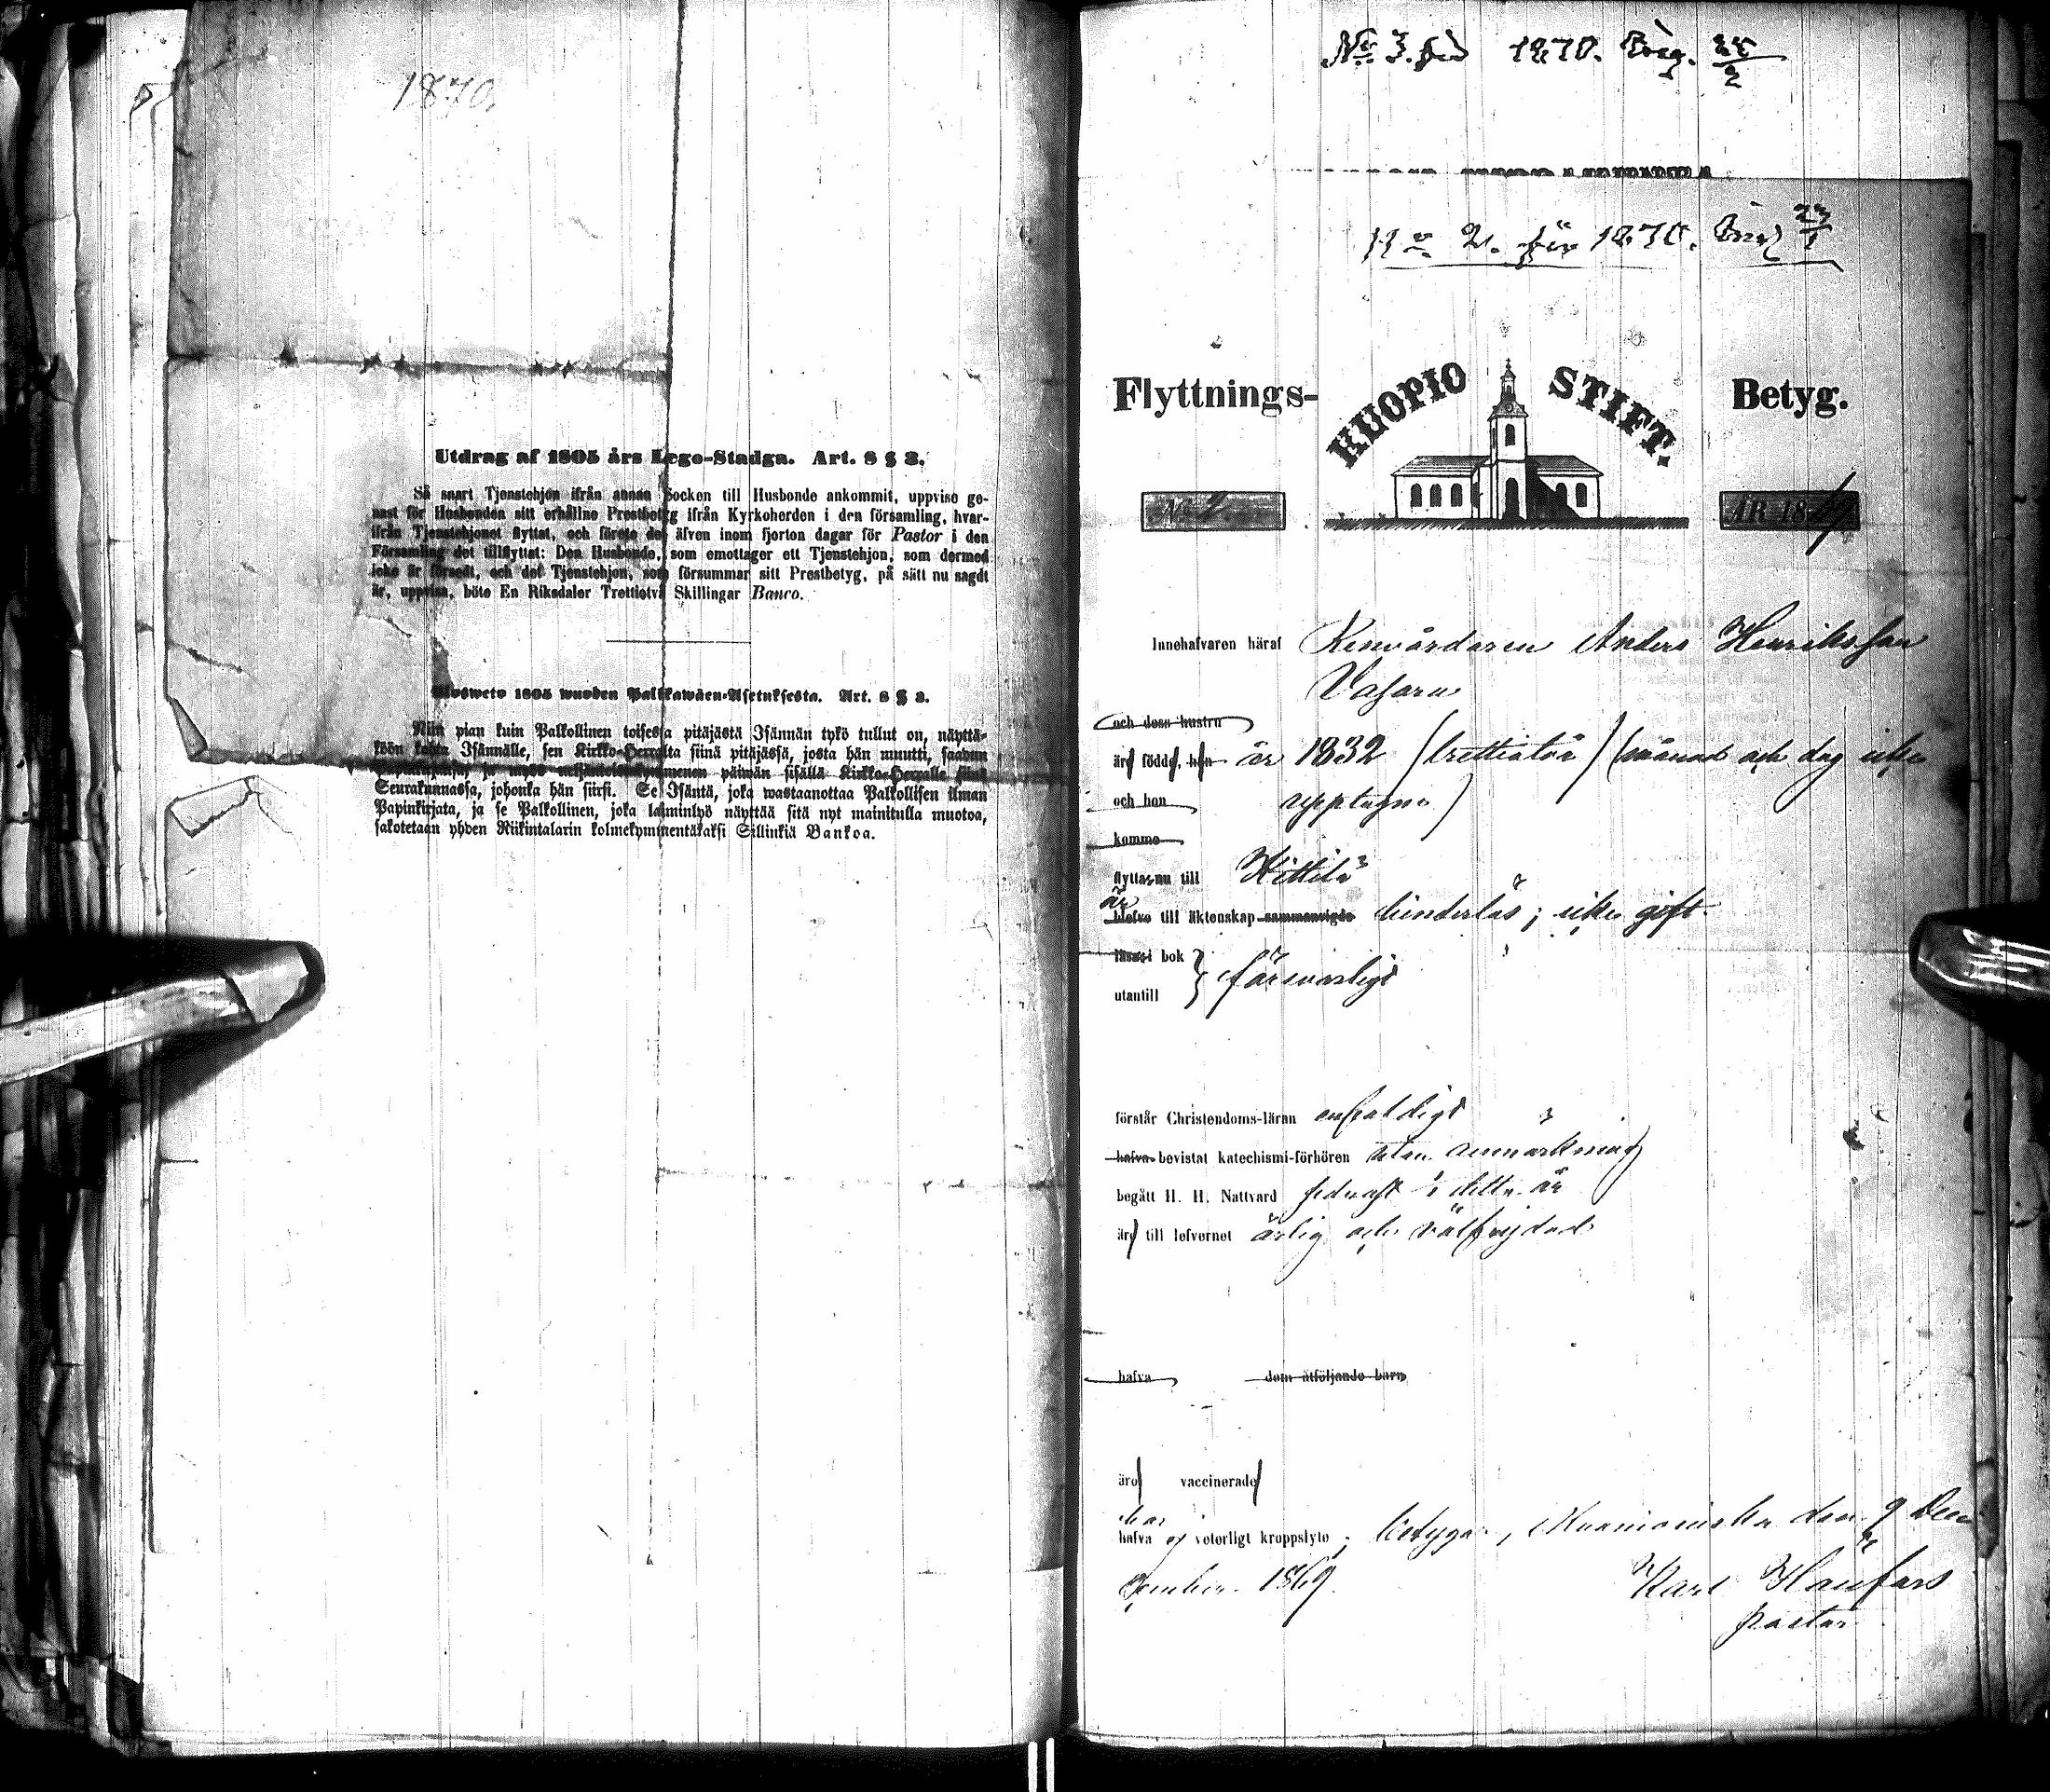 1870.
Utdrag af 1805 års Lego-Stadga. Art. 8 § 3.
Så snart Tjenstehjon ifrån annan Socken till Husbonde ankommit, uppvise ge-
nast för Husbonden sitt erhållne Prestbetyg ifrån Kyrkoherden i den församling, hvar-
ifrån Tjenstehjonet flyttat, och förete det äfven inom fjorton dagar för Pastor i den
Församling det tillflyttat: Den Husbonde, som emottager ett Tjenstehjon, som dermed
icke är försedt, och det Tjenstehjon, som försummar sitt Prestbetyg, på sätt nu sagdt
är, uppvisa, böte En Riksdaler Trettiotvå Skillingar Banco.
Ulosweto 1805 wuoden Palkkawäen-Asetuksesta. Art. 8 § 3.
Niin pian kuin Palkollinen toisesta pitäjästä Isännän tykö tullut on, näyttä-
köön kohta Isännälle, sen Kirkko-Herralta siinä pitäjässä, josta hän muutti, saadun
päiwän sisällä Kirkko-Herralle siinä
Seurakunnassa, johonka hän siirsi. Se Isäntä, joka wastaanottaa Palkollisen ilman
Papinkirjata, ja se Palkollinen, joka laiminlyö näyttää sitä nyt mainitulla muotoa,
sakotetaan yhden Riikintalarin kolmekymmentäkaksi Sillinkiä Bankoa.
No 3. för 1870.
No 2. för 1870.
Flyttnings- KUOPIO STIFT. Betyg.
No 2. ÅR 1869
Innehafvaren häraf Renvårdaren Anders Henriksson
Vasara
och dess hustru
äro födde, han år 1832 (trettiotvå) (månad och dag icke
och hon upptagne)
komme
flytta nu till Kittilä
är
blefve till äktenskap sammanvigde hinderlös; icke gift.
läsa i bok
utantill } försvarligt
förstår Christendoms-läran enfaldigt
hafva bevistat katechismi-förhören utan anmärkning
begått H. H. Nattvard sednast i detta år
äro till lefvernet ärlig och välfrejdad
hafva dem åtföljande barn
äro vaccinerade
har
hafva ej veterligt kroppslyte; betygar, Muonioniska den 9 De-
cember 1869.
Karl
pastor